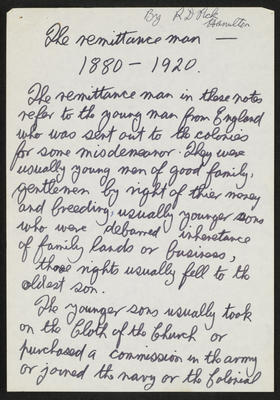 By R D Pick
Hamilton
The remittance man —
1880 – 1920.
The remittance man in these notes
refer to the young man from England
who was sent out to the colonies
for some misdemeanor. They were
usually young men of good family,
gentlemen by right of thier money
and breeding, usually younger sons
who were debarred inheretance
of family lands or business,
those rights usually fell to the
oldest son.
The younger sons usually took
on the Cloth of the Church or
purchased a commission in the army
or joined the navy or the Colonial